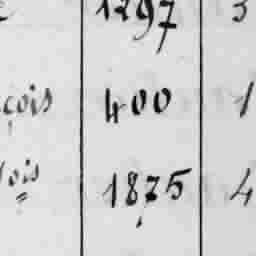 1297 3
çois 400 1
lois 1875 4